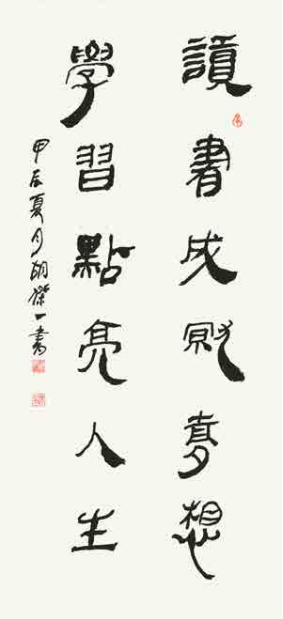 讀書成就夢想
學習點亮人生
甲辰夏月胡傑一書